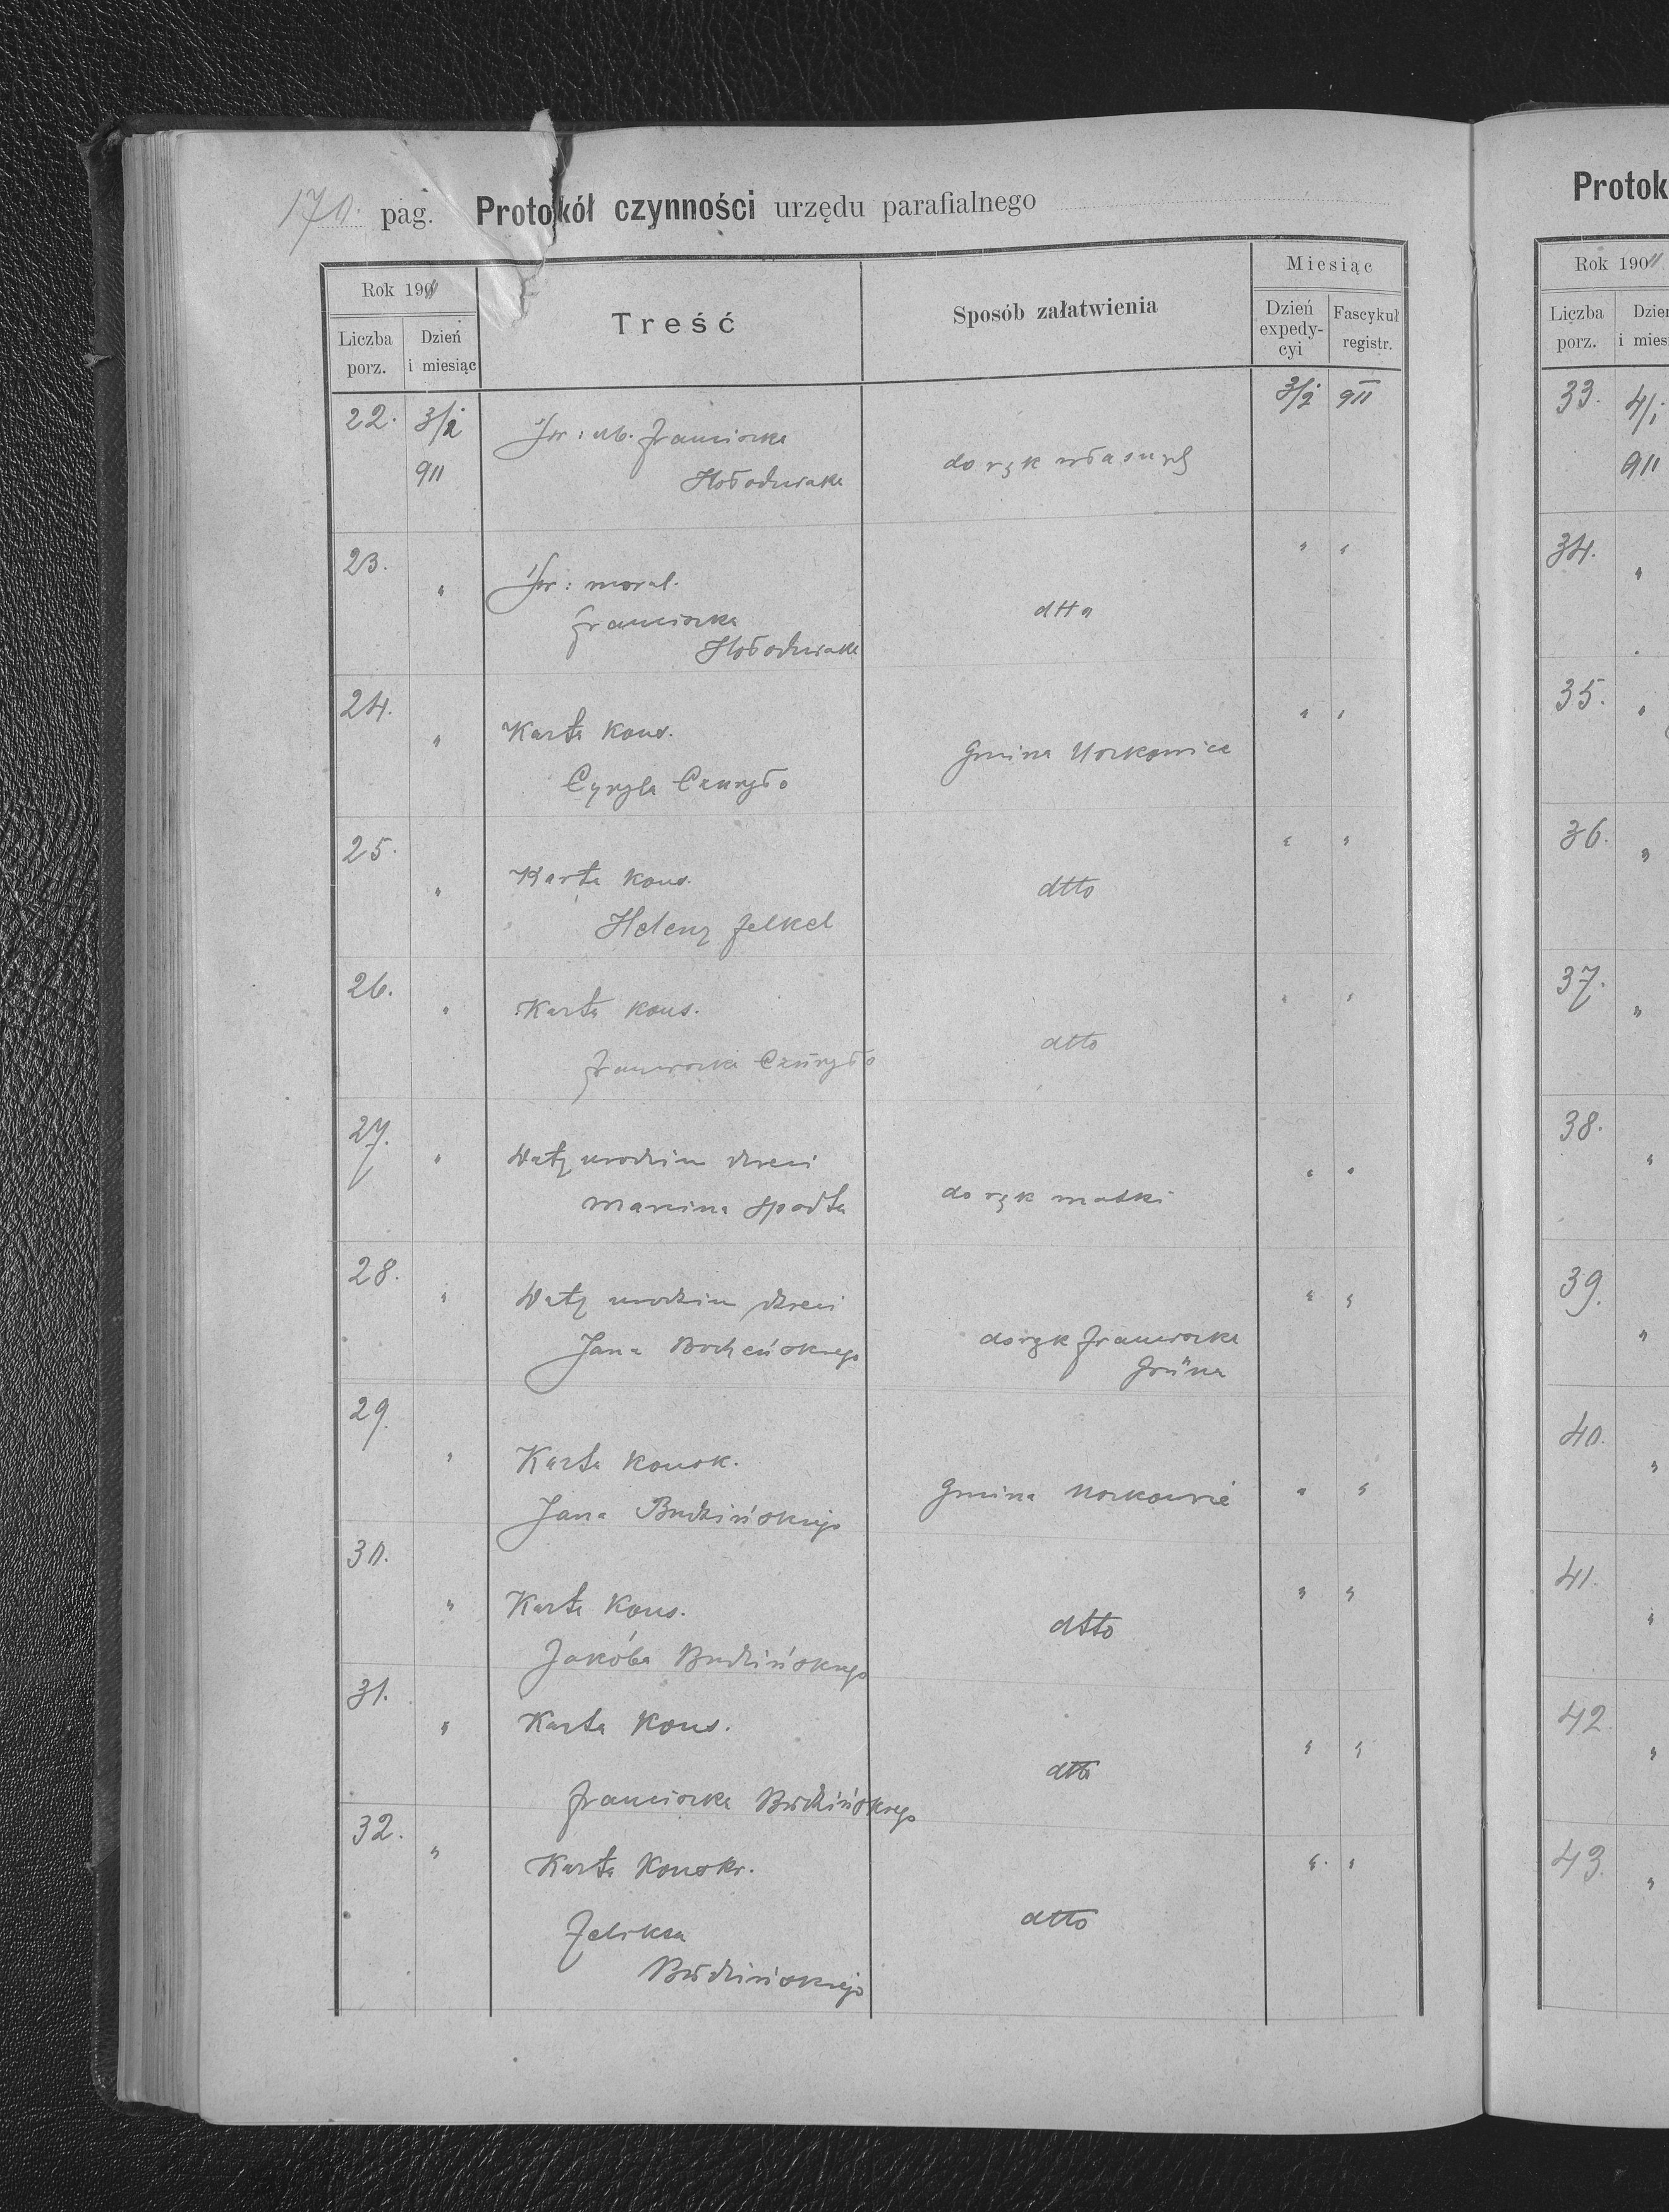 170. pag. Protokół czynności urzędu parafialnego
Rok 1911
Liczba porz.
Dzień i miesiąc
Treść
Sposób załatwienia
Miesiąc
Dzień expedycyi
Fascykuł registr.
22. 3/2 911 Franciszka
Hołodniaka
do rąk własnych
3/2 911
23. " moral.
Franciszka
Hołodniaka
dtto
" "
24. " Karta kons.
Cyryla Czuryło
Gmina
" "
25. " Karta kons.
Heleny Felkel
dtto
" "
26. " Karta kons.
Franciszka Czuryło
dtto
" "
27. " Daty urodzin dzieci
Marcina Spodta
do rąk matki
" "
28. " Daty urodzin dzieci
Jana Bocheńskiego
do rąk Franciszka
Grüna
" "
29. " Karta konsk.
Jana Budzińskiego
Gmina
" "
30. " Karta kons.
Jakóba Budzińskiego
dtto
" "
31. " Karta kons.
Franciszka Budzińskiego
dtto
" "
32. " Karta konskr.
Feliksa
Budzińskiego
dtto
" "
Protok
Rok 1911
Liczba porz.
33. 4/1 911
34. "
35. "
36. "
37. "
38. "
39. "
40. "
41. "
42. "
43. "